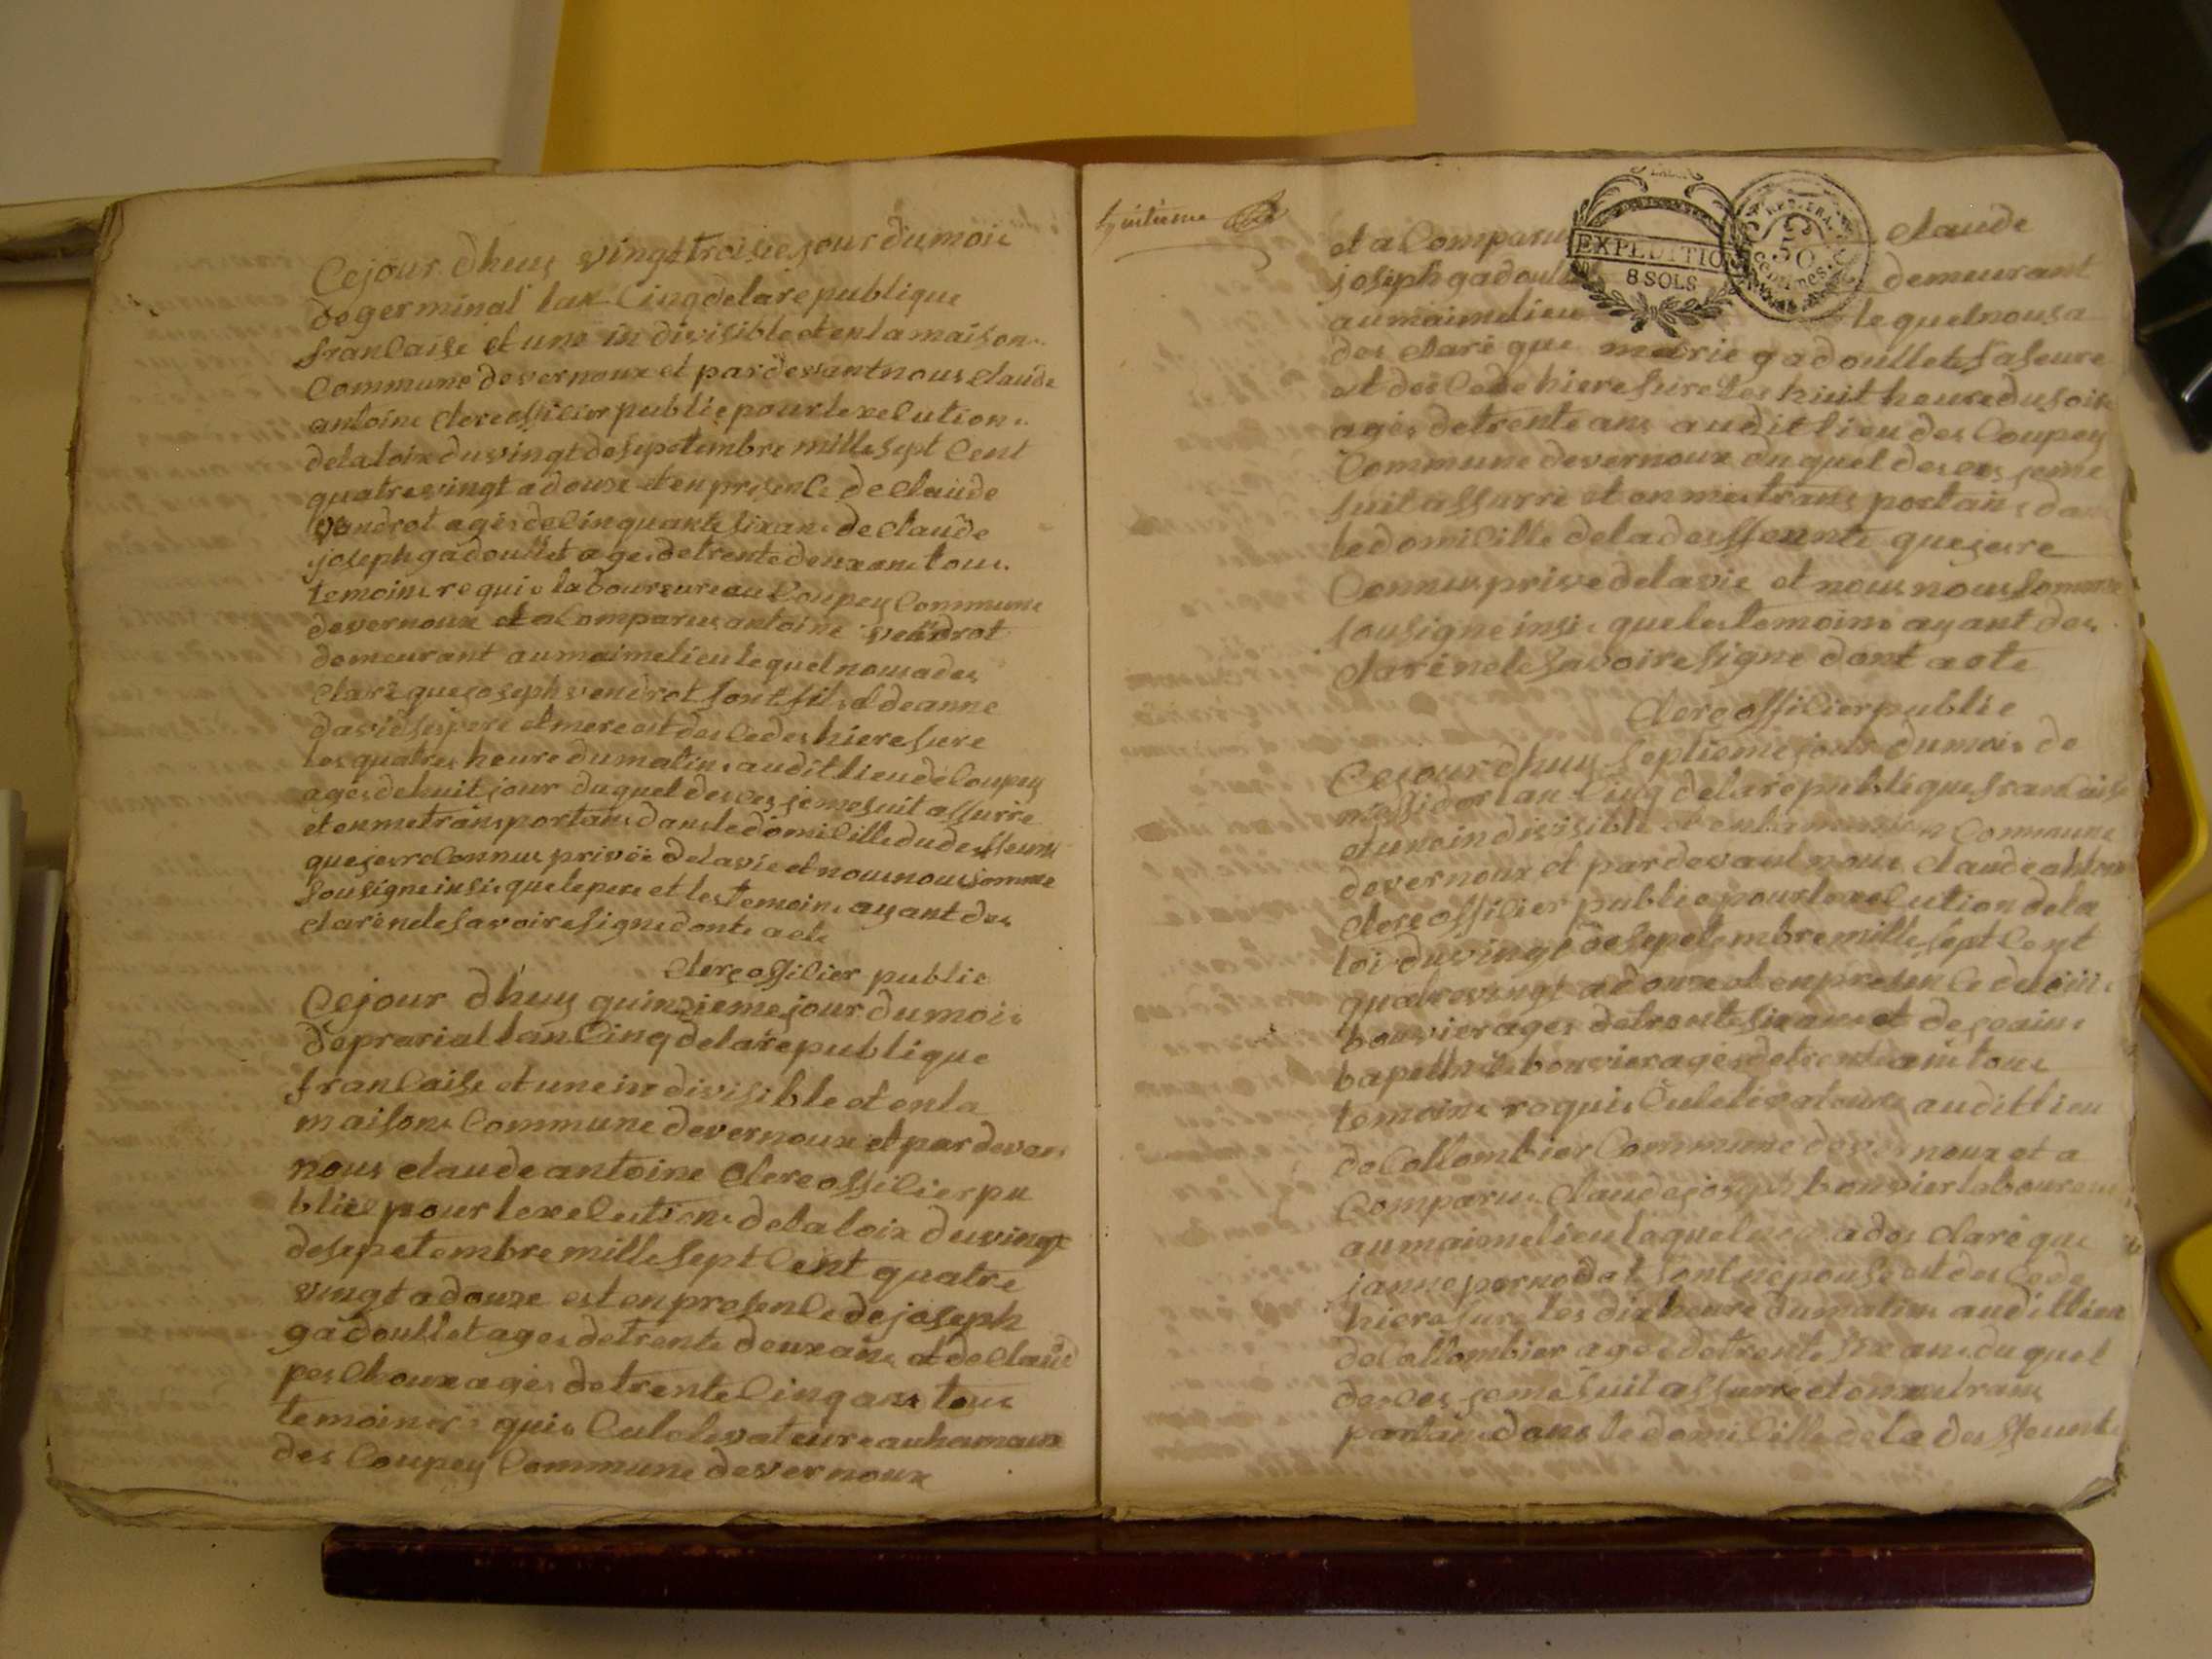 Cejour dhuy vingt troisie jour dumois
degerminal lan Cinq delarepublique
francaise et une in divisible et en la maison
Commune devernoux et pardevant nous claude
antoine clerc officier public pour lexecution
delaloix duvingt desepetembre mille sept Cent
quatrevingt adouze et en presence de claude
vendrot agés de Cinquante six ans de claude
joseph gadoullet ages detrente deux ans tous
temoins requis laboureur au Coupey Commune
devernoux et a Comparus antoine vendrot
demeurant aumaimelieu lequel nousades
claré que joseph vendrot sont fils et deanne
david ses pere et mere est des cedes hiere sure
les quatres heure dumatin audit lieu de Coupey
ages de huit jour duquel desces je me suit assurre
et en metransportans dans le domicille du deffeunt
que je reconnus privée delavie et nous nous somme
sousigne insi que le pere et les temoins ayant des
claré nele savoire signe donte acte
clerc officilier public
Cejour dhuy quinzieme jour dumois
deprarial lan Cinq delarepublique
francaise et une in divisible et en la
maison Commune devernoux et par devan
nous claude antoine clerc officilier pu
blic pour lexecution delaloix duvingt
desepetembre mille sept Cent quatre
vingt adouze est en presence de joseph
gadoullet ages detrente deux ans et de claud
peschoux agés detrente Cinq ans tous
temoins requis Culctevateure auhamaux
des Coupey Commune devernoux
huitieme
et a Comparu claude
joseph gadoullet demeurant
aumaimelieu lequel nousa
des claré que marie gadoullet saseure
est des cede hiere sure les huit heure du soir
ages detrente ans audit lieu des Coupey
Commune devernoux du quel desces jeme
suit assurré et en metrans portans da
le domicille deladesffeunte que jere
Connus prive delavie et nous nous somme
sousigne insi que les temoins ayant des
claré nele savoire signe dont acte
Clerc officilier public
Cejour dhuy septieme jour dumois de
messidor lan Cinq delarepublique francaise
et une in divisible et en la maison Commune
devernoux et par devant nous claude antoin
clerc officilier public pour lexecution dela
loi duvingt desepetembre mille sept Cent
quatrevingt adouze et en presence de
bouvier ages detrente six ans et de jeain
bapettiste bouvier agés detrente ans tous
temoins requis Culetivateure audit lieu
de Collombier Commune devernoux et a
Comparus claude joseph bouvier laboureur
aumaimelieu lequel nous ades claré que
janne pernodat sont népouse est des cede
hiere sure les dix heure dumatin audit lieu
de Collombier agés detrente six ans duquel
desces jeme suit assurre et en metrans
portans dans le domicille dela desffeunte
EXPEDITION
8 SOLS
50
centimes.